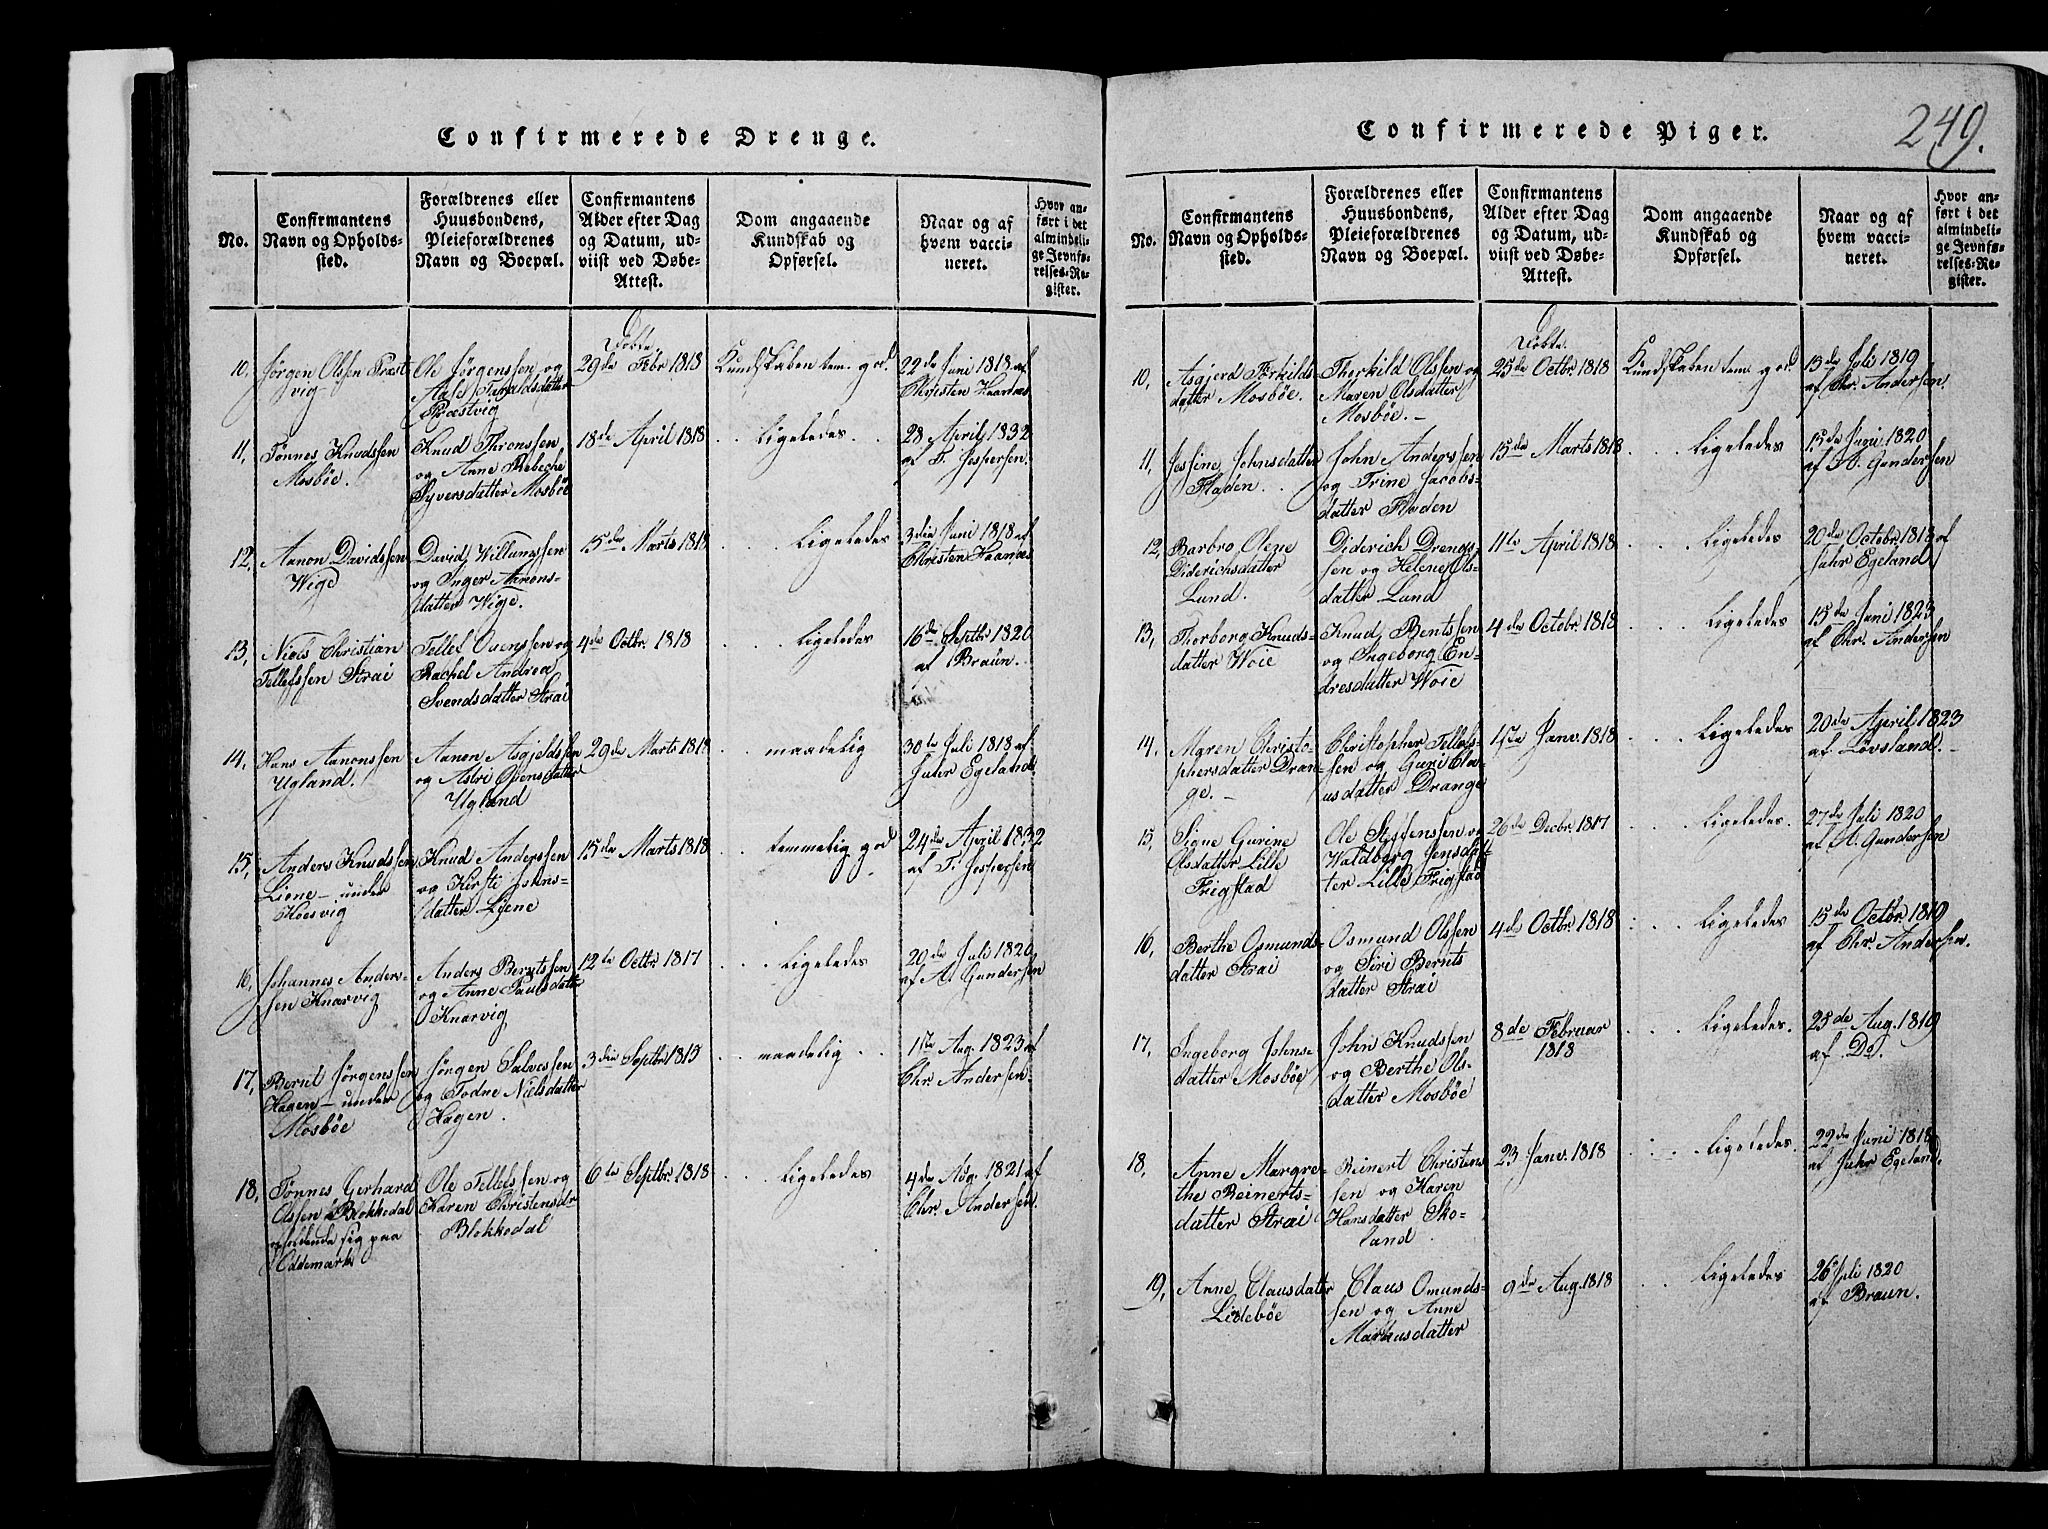 Confirmerede Drenge.
No.
Confirmantens
Navn og Opholds-
sted.
Forældrenes eller
Huusbondens,
Pleieforældrenes
Navn og Boepæl.
Confirmantens
Alder efter Dag
og Datum, ud-
viist ved Døbe-
Attest.
Dom angaaende
Kundskab og
Opførsel.
Naar og af
hvem vacci-
neret.
Hvor an-
ført i det
almindeli-
ge Jevnfø-
relses-Re-
gister.
10,
Jørgen Olsen Præst
vig
Ole Jørgenssen og
Taraldsdatter
Præstvig
Døbte.
29de Febr 1818
Kundskaben tem. god
22de Juni 1818 af
Christen Haanæs
11,
Tønnes Knudssen
Mosbøe.
Knud Thronssen
og Anne Rebeche
Syversdatter Mosbøe
18de April 1818
. . Ligeledes. . .
28 April 1832
af T. Jespersen.
12,
Aanon Davidssen
Wige
David Willumssen
og Inger Aanons-
datter Wige.
15de Marts 1818
. . . . Ligeledes
3die Juni 1818 af
Christen Haanæs
13,
Niels Christian
Tellefssen Strai
Tellef Ovenssen og
Rachel Andrea
Svendsdatter Strai
4de Octbr. 1818
. . . . Ligeledes
16de Septbr 1820
af Braun.
14,
Hans Aanonssen
Ugland.
Aanon Asgjeldssen
og Astri Ovensdatter
Ugland
29de Marts 1818
. . maadelig
30te Juli 1818 af
Juhr Egeland
15,
Anders Knudssen
Liene - under
Høesvig
Knud Anderssen
og Kirsti Johns-
datter Liene
15de Marts 1818
. . temmelig god
24de April 1832
af T. Jespersen
16,
Johannes Anders-
sen Knarvig
Anders Berntssen
og Anne Paulsdatter
Knarvig
12te Octbr 1817
. . . Ligeledes
20de Juli 1820
af A. Gundersen
17,
Bernt Jørgenssen
Hagen - under
Mosbøe
Jørgen Salvessen
og Todne Nielsdatter
Hagen.
3die Septbr 1815
. . . maadelig . .
1ste Aug. 1823 af
Chr. Andersen.
18,
Tønnes Gerhard
Olssen Blokkedal
opholdende sig paa
Oddemark
Ole Tellefssen og
Karen Christensdr
Blokkedal
6te Septbr. 1818
. . . . Ligeledes
4de Aug. 1821 af
Chr. Andersen.
Confirmerede Piger.
249.
No.
Confirmantens
Navn og Opholds-
sted.
Forældrenes eller
Huusbondens,
Pleieforældrenes
Navn og Boepæl.
Confirmantens
Alder efter Dag
og Datum, ud-
viist ved Døbe-
Attest.
Dom angaaende
Kundskab og
Opførsel.
Naar og af
hvem vacci-
neret.
Hvor an-
ført i det
almindeli-
ge Jevnfø-
relses-Re-
gister.
10,
Asgjerd Torkilds-
datter Mosbøe.
Therkild Olssen og
Maren Olsdatter
Mosbøe. -
Døbte.
25de Octbr 1818
Kundskaben tem. god
13de Juli 1819
af Chr. Andersen.
11,
Jessine Johnsdatter
Fladen . .
John Anderssen
og Trine Jacobs-
datter Fladen
15de Marts 1818
. . . Ligeledes
15de Juni 1820
af A. Gundersen
12,
Barbro Olene
Diderichsdatter
Lund.
Diderich Drengs-
sen og Helene Ols-
datter Lund
11te April 1818
. . . . Ligeledes
20de Octobr. 1818 af
Juhr Egeland
13,
Thorborg Knuds-
datter Woie
Knud Bentssen
og Ingeborg En-
dresdatter Woie
4de Octobr. 1818
. . . . Ligeledes
15de Juni 1823
af Chr. Andersen
14,
Maren Christo-
phersdatter Dran-
ge. -
Christopher Tellefs-
sen og Guri Cla-
usdatter Drange
17de Janv. 1818
. . . . Ligeledes
20de April 1823
af Løvsland. -
15,
Signe Gurine
Olsdatter Lille
Frigstad
Ole Steffenssen og
Waldborg Jensdat-
ter Lille Frigstad
26de Decbr. 1817
. . . . Ligeledes.
27de Juli 1820
af A. Gundersen
16,
Berthe Osmunds-
datter Strai
Osmund Olssen
og Siri Bernts
datter Strai
4de Octbr. 1818
. . . Ligeledes
15de Octbr. 1819
af Chr. Andersen.
17,
Ingeborg Johns-
datter Mosbøe
John Knudssen
og Berthe Ols-
datter Mosbøe
8de Februar
1818
. . . . Ligeledes.
25de Aug. 1819
af Do.
18,
Anne Margre-
the Reinerts-
datter Strai
Reinert Christens
sen og Karen
Hansdatter Sko-
land.
23 Janv. 1818
. . . . . Ligeledes.
22de Juni 1818
af Juhr Egeland.
19,
Anne Clausdatter
Lidebøe
Claus Omunds-
sen og Anne
Markusdatter
9de Aug. 1818
. . . Ligeledes
26 Juli 1820
af Braun.